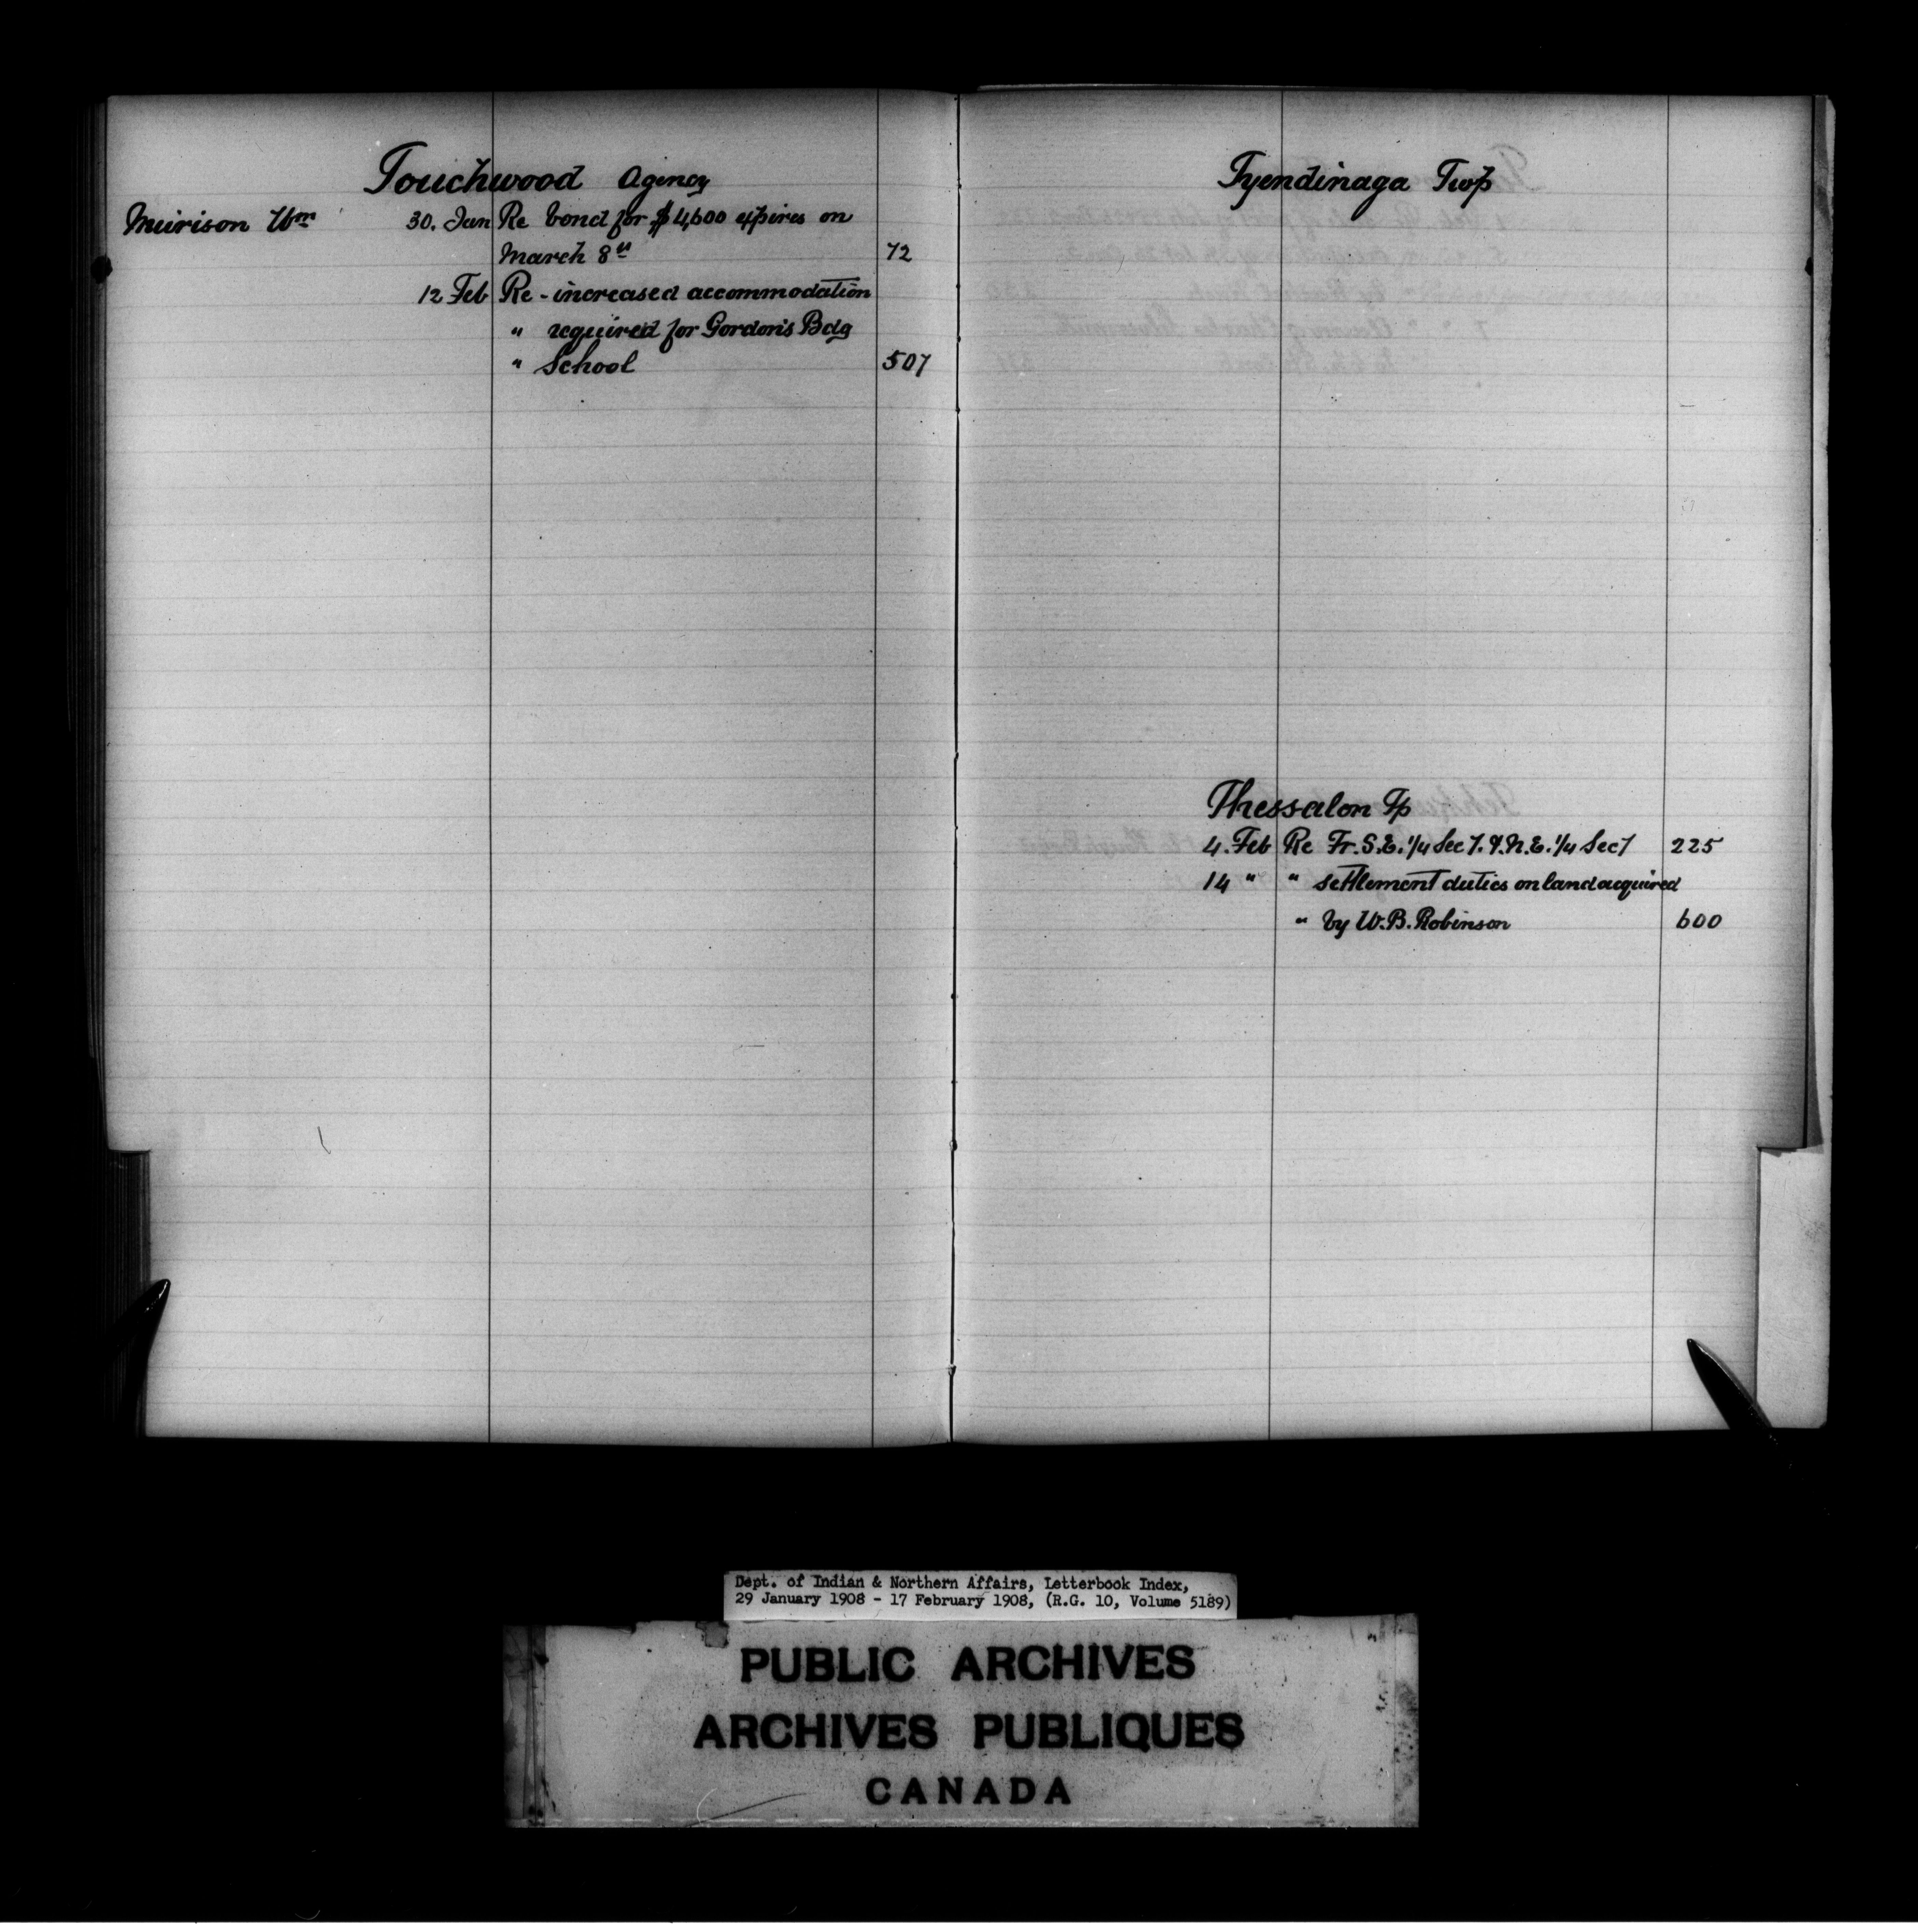 Touchwood Agency
Muirison Wm 30. Jan Re bond for $4,600 expires on
March 8th 72
12 Feb Re - increased accommodation
" required for Gordon's Bdg
" School 507
Tyendinaga Twp
Thessalon Tp
4. Feb Re Fr. S.E. 1/4 Sec 7. & N.E. 1/4 Sec 7 225
14 " " settlement duties on land acquired
" by W. B. Robinson 600
Dept. of Indian & Northern Affairs, Letterbook Index,
29 January 1908 - 17 February 1908, (R.G. 10, Volume 5189)
PUBLIC ARCHIVES
ARCHIVES PUBLIQUES
CANADA